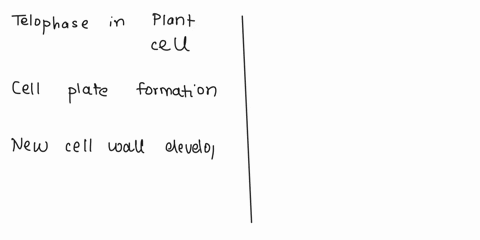 Telophase in Plant
cell
Cell plate formation
New cell wall develop